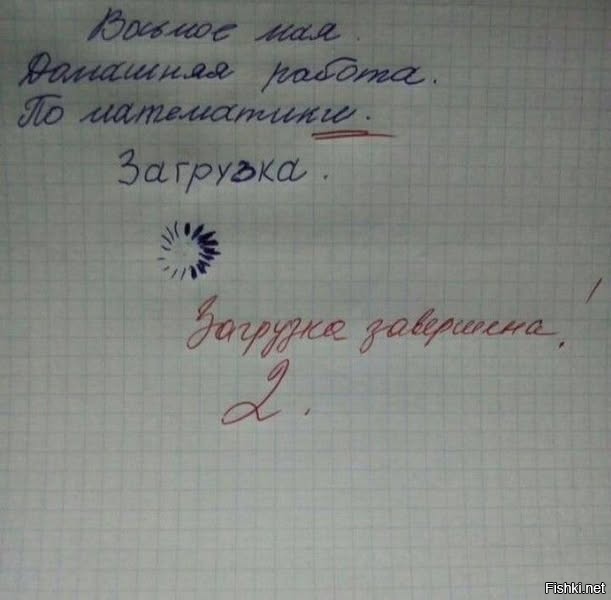 Восьмое мая.
Домашняя работа.
По математики.
Загрузка.
Загрузка завершена!
2.
Fishki.net